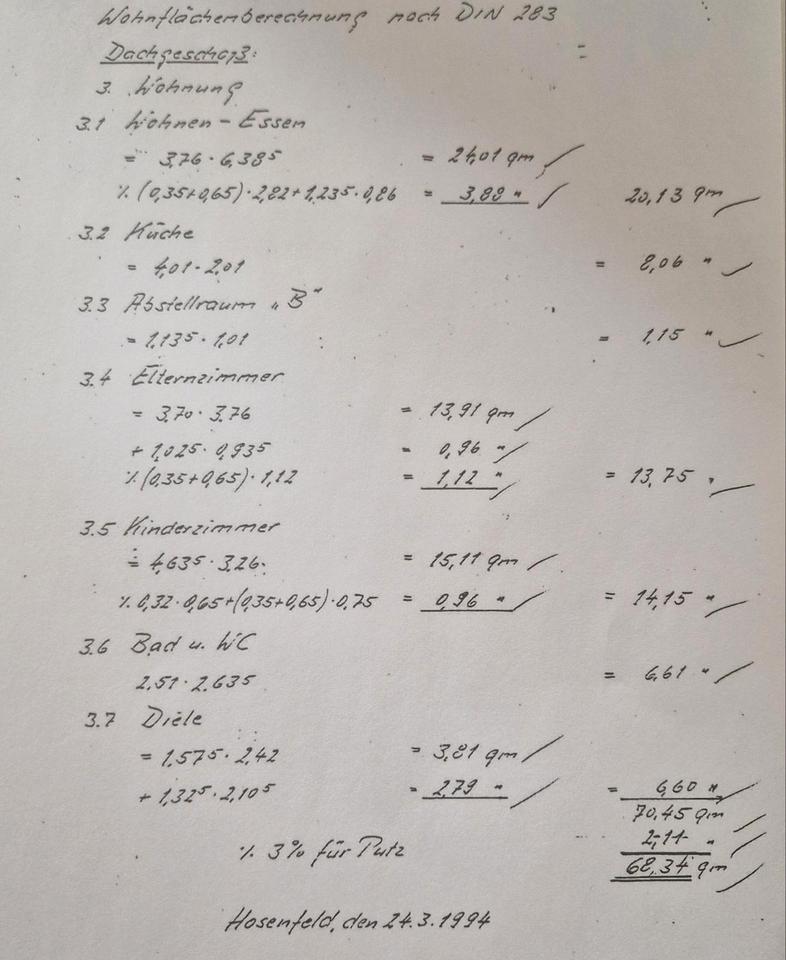 Wohnflächenberechnung nach DIN 283
Dachgeschoß:
3. Wohnung
3.1 Wohnen - Essen
= 3,76 · 6,38⁵ = 24,01 qm
·/. (0,35+0,65) · 2,82 + 1,235 · 0,86 = 3,88 " 20,13 qm
3.2 Küche
= 4,01 · 2,01 = 8,06 "
3.3 Abstellraum „B"
= 1,13⁵ · 1,01 = 1,15 "
3.4 Elternzimmer
= 3,70 · 3,76 = 13,91 qm
+ 1,025 · 0,93⁵ = 0,96 "
·/. (0,35+0,65) · 1,12 = 1,12 " = 13,75 "
3.5 Kinderzimmer
= 4,635 · 3,26 = 15,11 qm
·/. 0,32 · 0,65 + (0,35+0,65) · 0,75 = 0,96 " = 14,15 "
3.6 Bad u. WC
2,51 · 2,635 = 6,61 "
3.7 Diele
= 1,575 · 2,42 = 3,81 qm
+ 1,32⁵ · 2,10⁵ = 2,79 " = 6,60 "
70,45 qm
·/. 3% für Putz 2,11 "
68,34 qm
Hosenfeld, den 24.3.1994